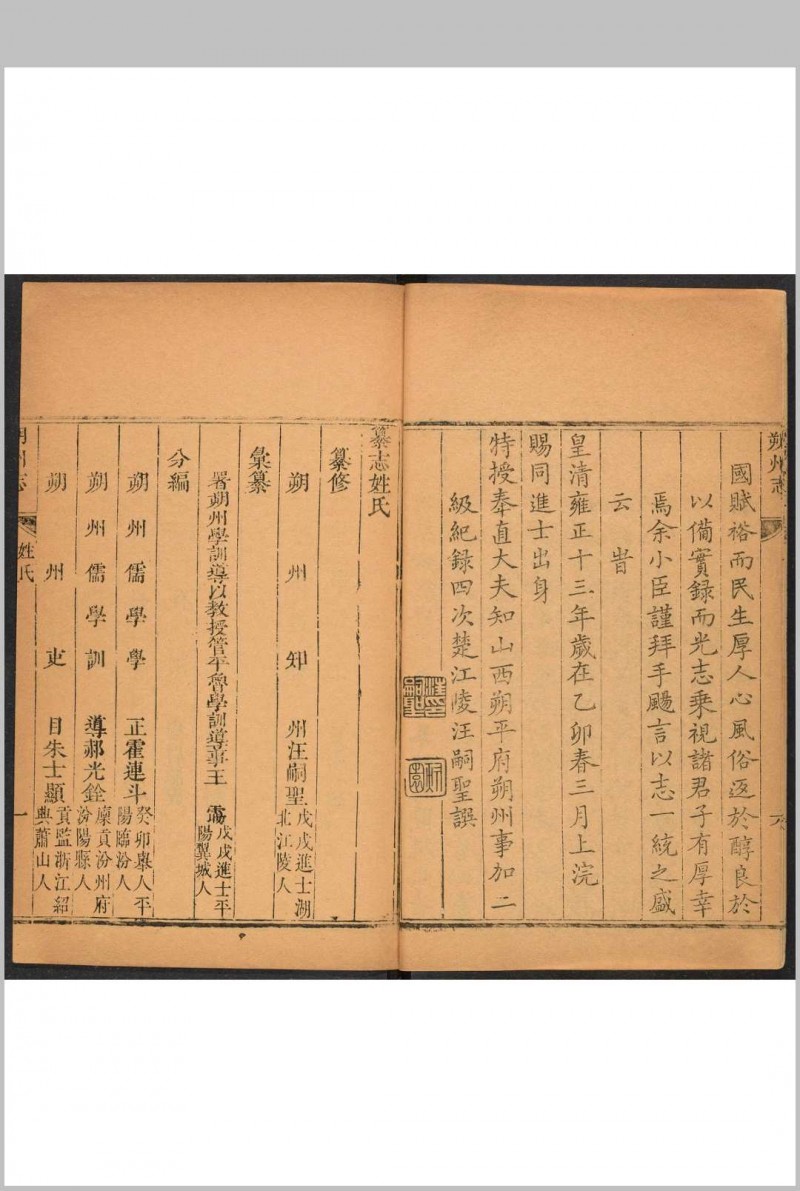 朔州志
六
國賦裕而民生厚人心風俗返於醇良於
以備實録而光志乘視諸君子有厚幸
焉余小臣謹拜手颺言以志一統之盛
云旹
皇清雍正十三年歲在乙卯春三月上浣
賜同進士出身
特授奉直大夫知山西朔平府朔州事加二
級紀録四次楚江陵汪嗣聖譔
汪印嗣聖
纂志姓氏
纂修
朔州知州汪嗣聖戊戌進士湖北江陵人
彙纂
署朔州學訓導以教授管平魯學訓導事王霷戊戌進士平陽翼城人
分編
朔州儒學學正霍連斗癸卯舉人平陽臨汾人
朔州儒學訓導郝光銓廩貢汾州府汾陽縣人
朔州吏目朱士顯貢監浙江紹興蕭山人
朔州志
姓氏
一